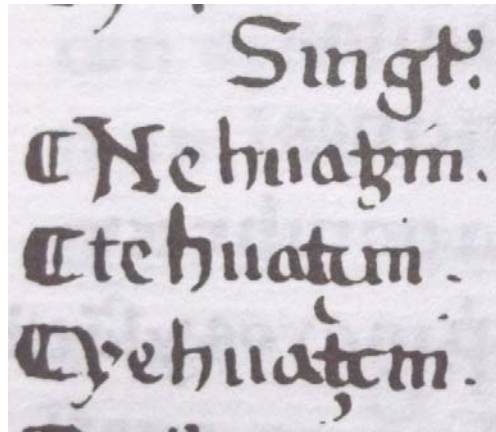 Singlr.
¶ Nehuatzin.
¶ tehuatçin.
¶ yehuatçin.